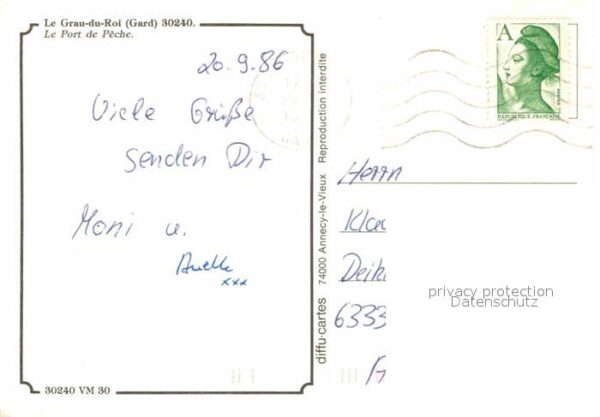 Le Grau-du-Roi (Gard) 30240.
Le Port de Pêche.
20.9.86
Viele Grüße
senden Dir
Moni u.
xxx
30240 VM 30
diffu-cartes 74000 Annecy-le-Vieux Reproduction interdite
A
REPUBLIQUE FRANÇAISE
POSTES
Herrn
Kla
Dei
6333
privacy protection
Datenschutz